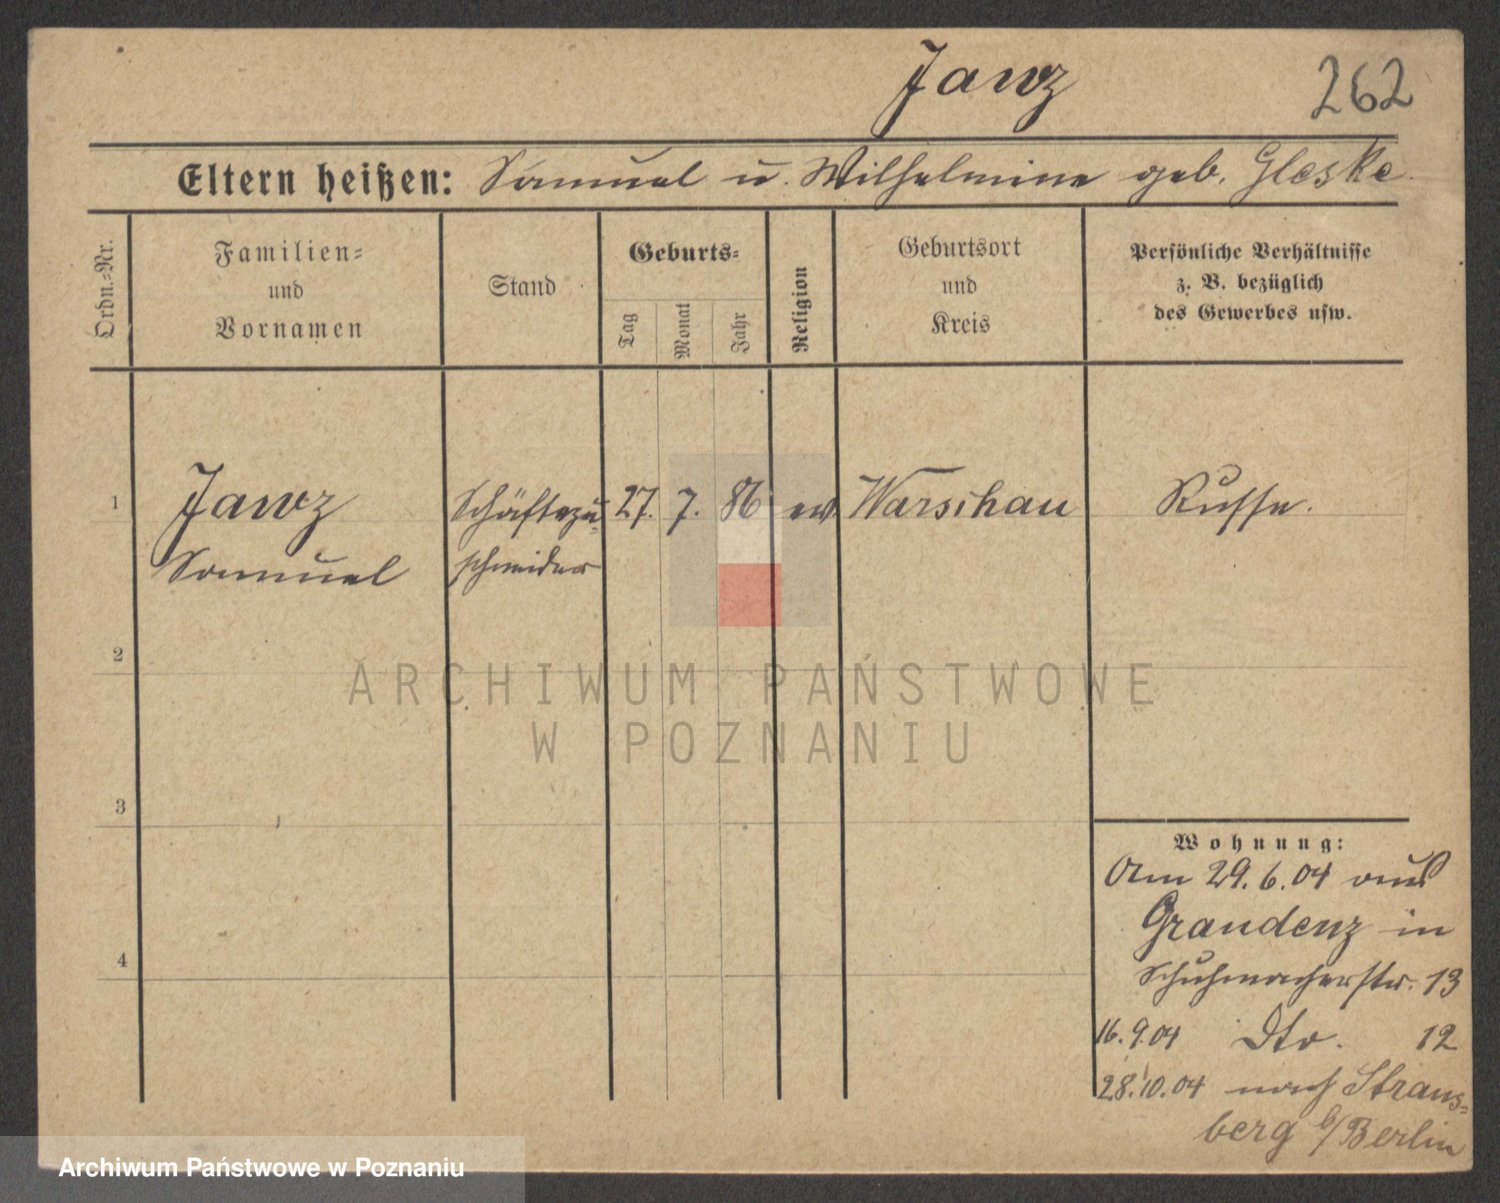 Jawz
262
Eltern heißen: Samuel u. Wilhelmine geb. Gleske.
Ordn.-Nr.
Familien-
und
Vornamen
Stand
Geburts-
Tag
Monat
Jahr
Religion
Geburtsort
und
Kreis
Persönliche Verhältnisse
z. B. bezüglich
des Gewerbes usw.
1
Jawz
Samuel
Schäftezu-
schneider
27.
7.
86
ev
Warschau
Russe.
2
3
4
Wohnung:
Am 29.6.04 aus
Graudenz in
Schuhmacherstr. 13
16.9.04 Dto. 12
28.10.04 nach Straus-
berg b/Berlin
ARCHIWUM PAŃSTWOWE
W POZNANIU
Archiwum Państwowe w Poznaniu